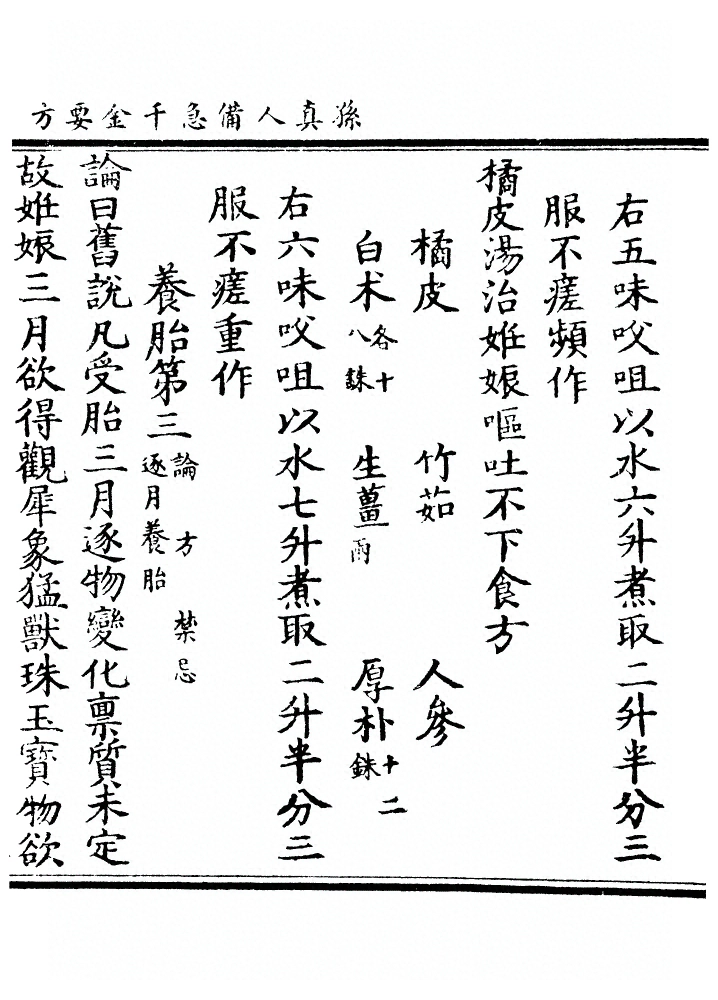 孫真人備急千金要方
右五味㕮咀以水六升煮取二升半分三
服不瘥頻作
橘皮湯治妊娠嘔吐不下食方
橘皮 竹茹 人參
白术各十八銖 生薑兩 厚朴十二銖
右六味㕮咀以水七升煮取二升半分三
服不瘥重作
養胎第三論 方 禁忌 逐月養胎
論曰舊說凡受胎三月逐物變化禀質未定
故妊娠三月欲得觀犀象猛獸珠玉寶物欲